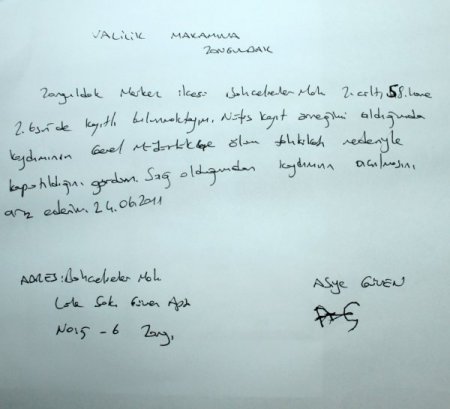 VALİLİK MAKAMINA
ZONGULDAK
Zonguldak Merkez ilçesi Bahçelievler Mah 2. cilt, 58. hane
2. sırada kayıtlı bulunmaktayım. Nüfus kayıt örneğimi aldığımda
kaydımın Genel Müdürlükçe ölüm nedeniyle
kapatıldığını gördüm. Sağ olduğumdan kaydımın açılmasını
arz ederim. 24.06.2011
ADRES: Bahçelievler Mah
Asye GÜVEN
Sok. Güven Apt
No: -6 Zong.